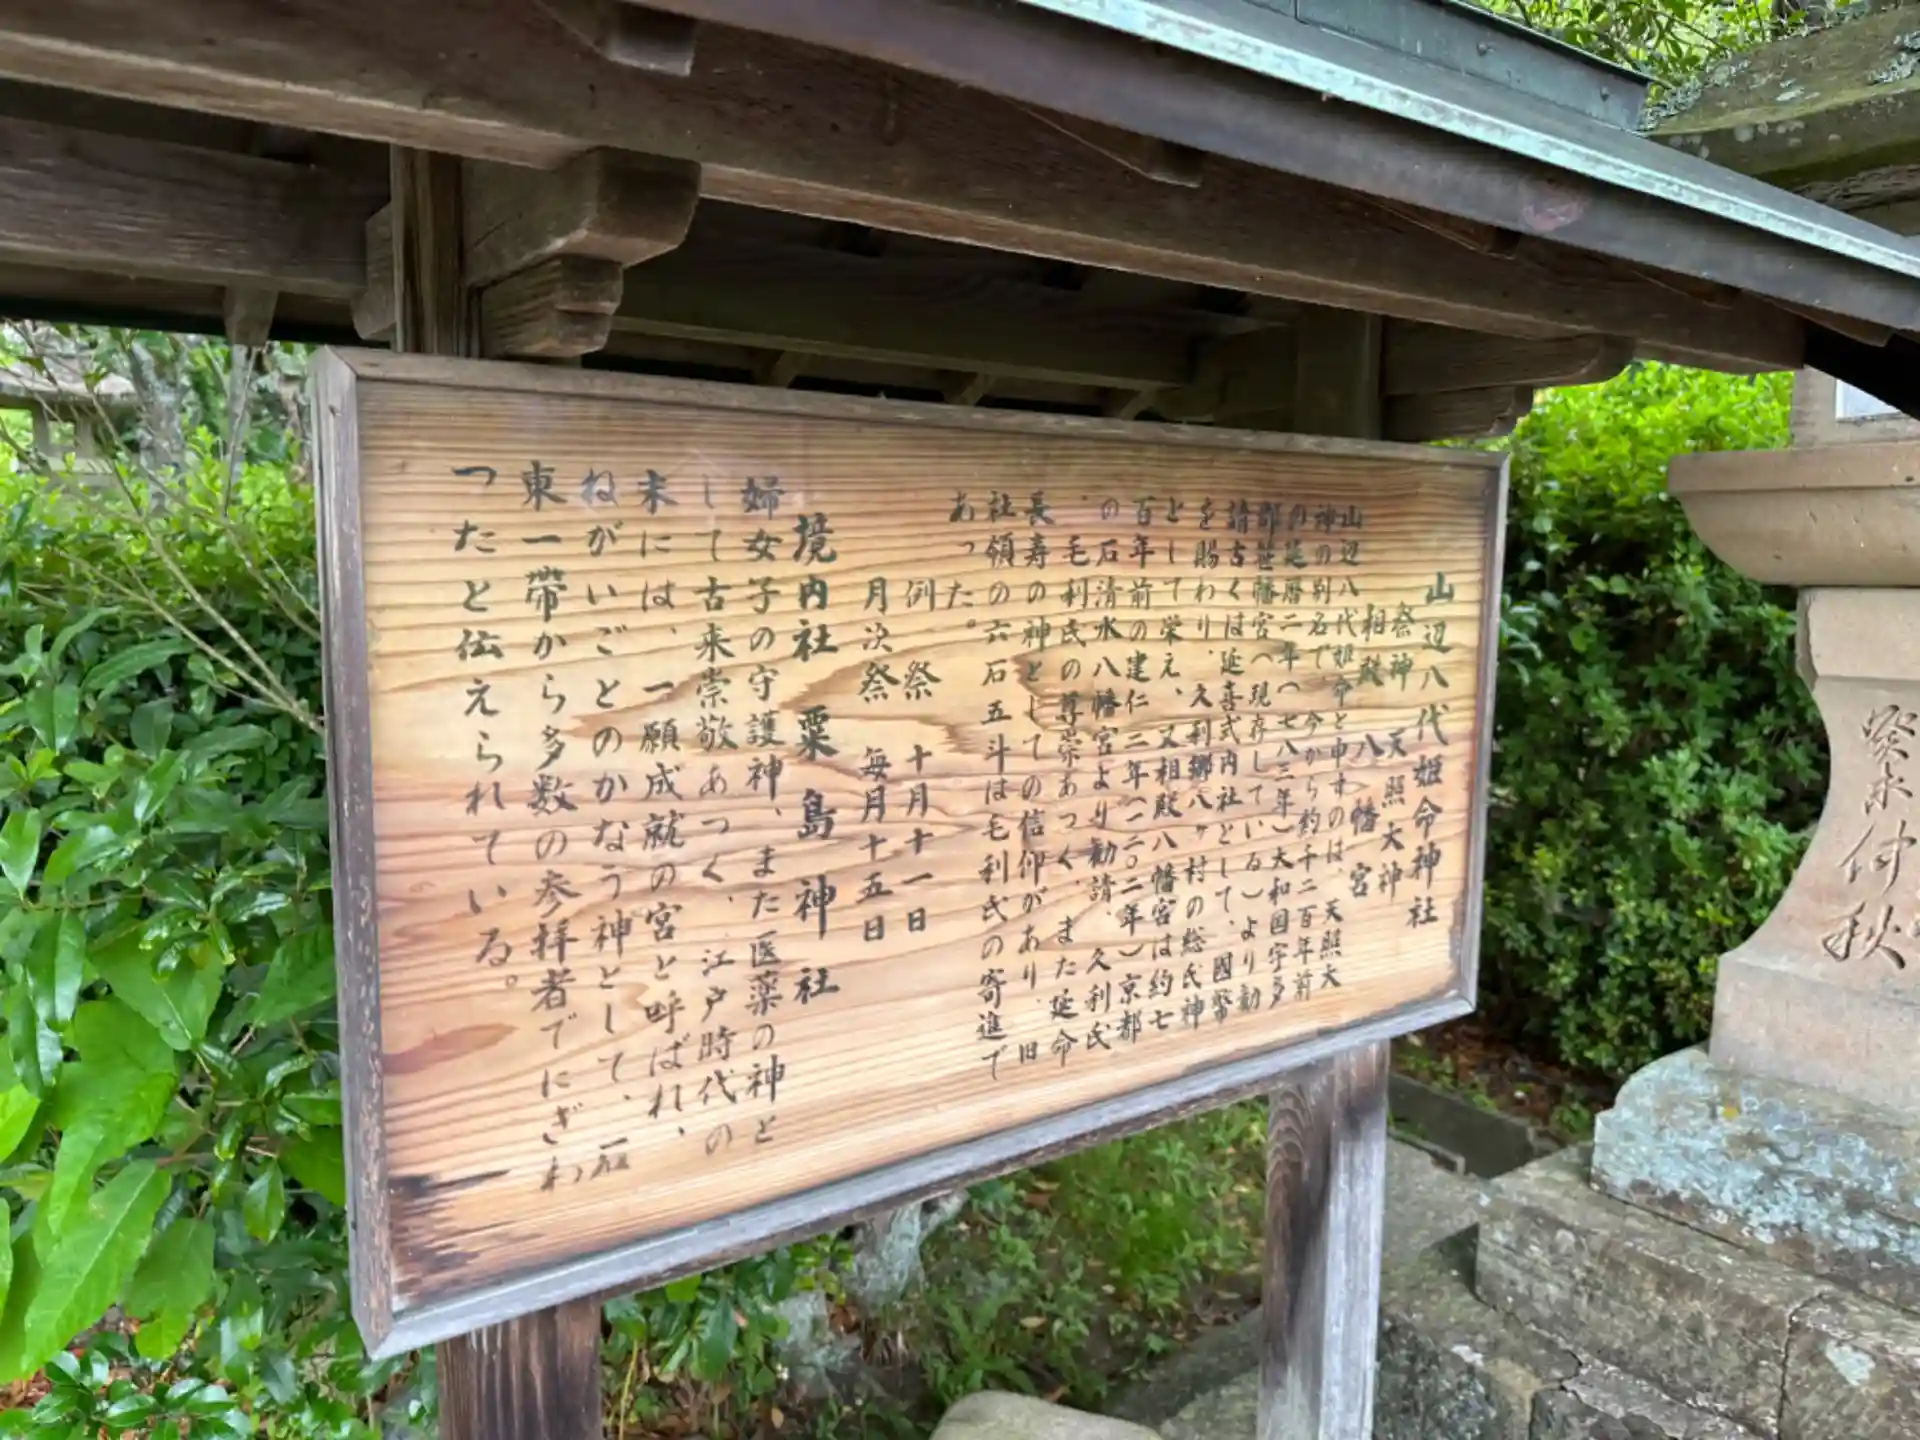 山辺八代姫命神社
祭神 天照大神
相殿 八幡宮
山辺八代姫命と申すのは、天照大
神の別名で、今から約千二百年前
の延暦二年(七八三年)大和国宇多
郡笹幡宮(現存している)より勧
請古くは延喜式内社として、國幣
を賜わり、久利郷八ヶ村の総氏神
として栄え、又相殿八幡宮は約七
百年前の建仁二年(一二〇二年)京都
の石清水八幡宮より勧請、久利氏
、毛利氏の尊崇あつく、また延命
長寿の神としての信仰があり、旧
社領の六石五斗は毛利氏の寄進で
あった。
例祭 十月十一日
月次祭 毎月十五日
境内社 粟島神社
婦女子の守護神、また医薬の神と
して古来崇敬あつく、江戸時代の
末には、一願成就の宮と呼ばれ、
ねがいごとのかなう神として、石
東一帯から多数の参拝者でにぎわ
ったと伝えられている。
癸未仲秋